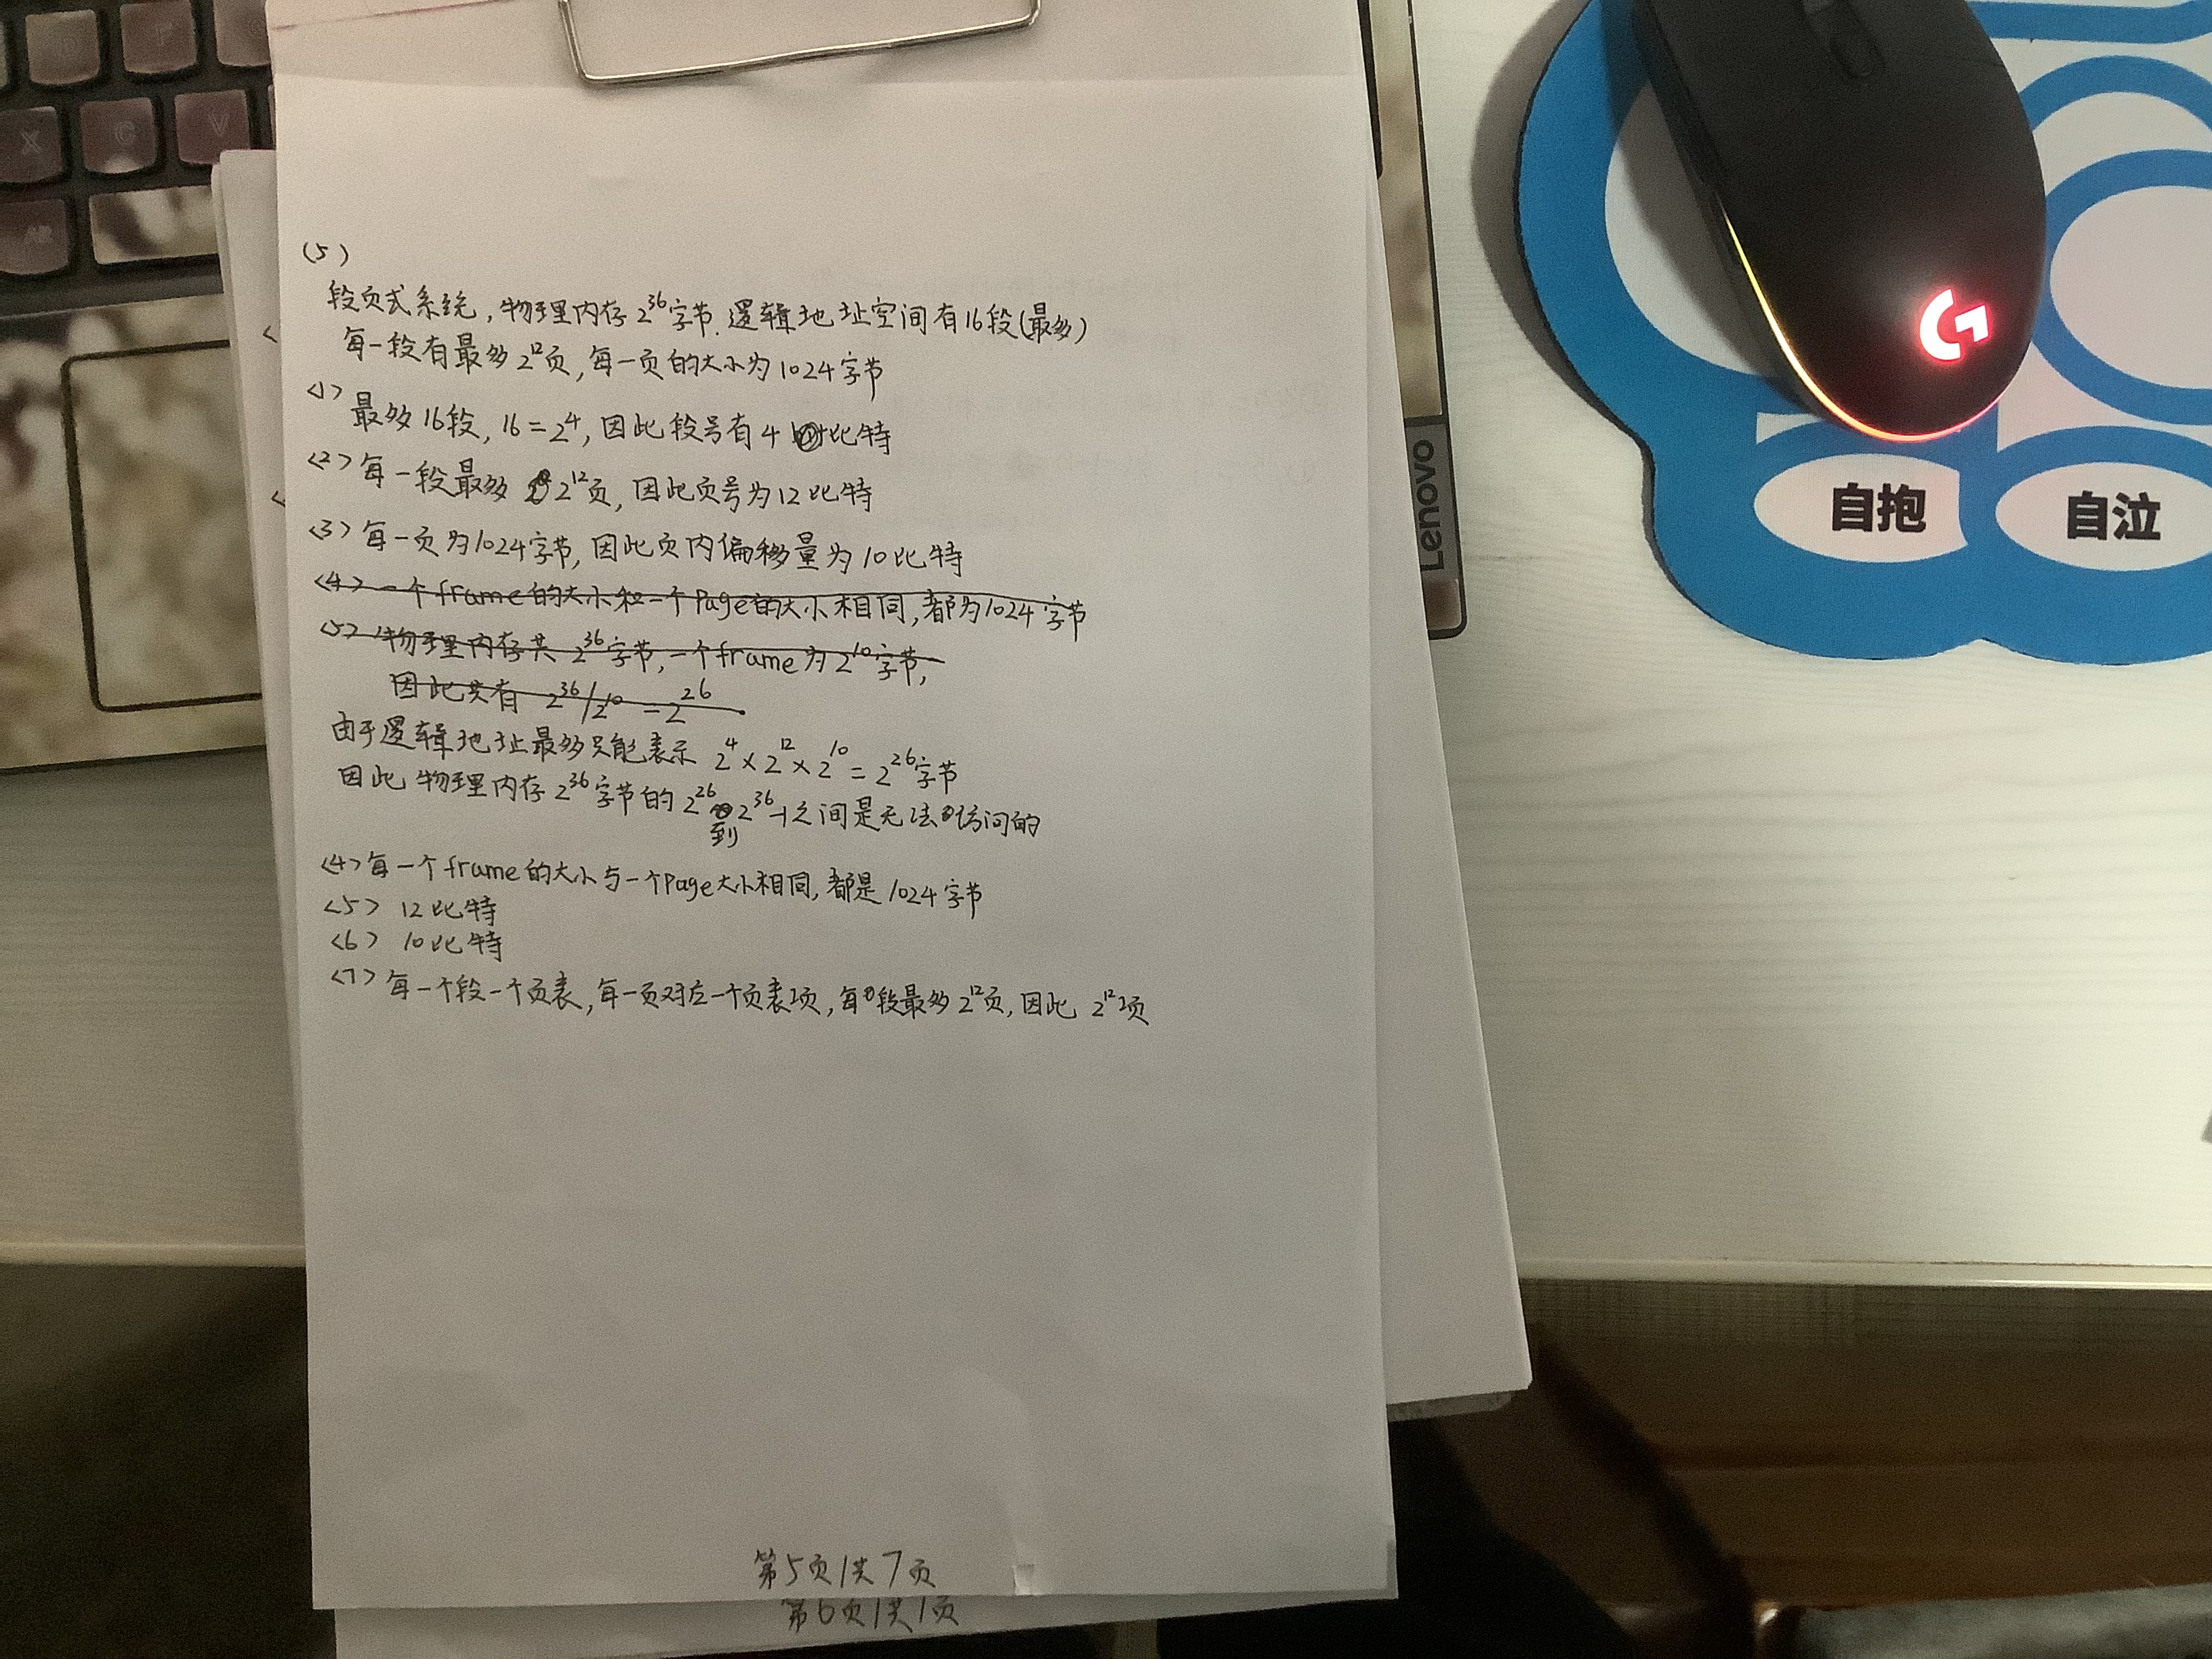 X C V
(5)
段页式系统,物理内存2^36字节.逻辑地址空间有16段(最多)
每一段有最多2^12页,每一页的大小为1024字节
<1>
最多16段, 16=2^4, 因此段号有4比特
<2>每一段最多2^12页,因此页号为12比特
<3>每一页为1024字节,因此页内偏移量为10比特
<4>一个frame的大小和一个Page的大小相同,都为1024字节
<5>物理内存共2^36字节,一个frame为2^10字节,
因此共有 2^36/2^10 = 2^26
由于逻辑地址最多只能表示 2^4×2^12×2^10 = 2^26字节
因此物理内存2^36字节的2^26到2^36-1之间是无法访问的
<4>每一个frame的大小与一个Page大小相同,都是1024字节
<5> 12比特
<6> 10比特
<7>每一个段一个页表,每一页对应一个页表项,每段最多2^12页,因此 2^12项
第5页/共7页
第6页/共1页
Lenovo
G
自抱
自泣